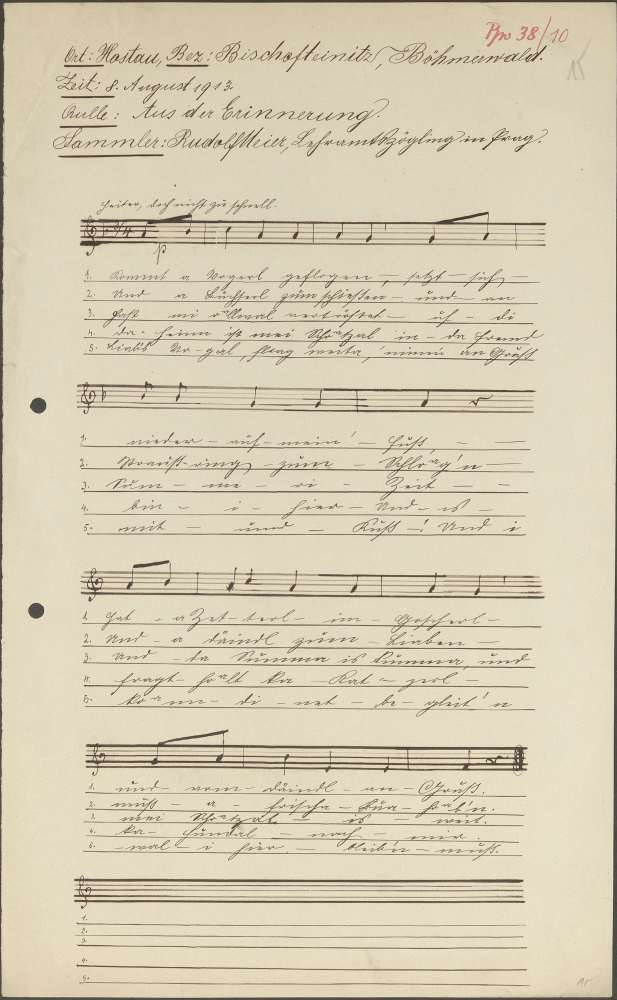 Ppn 38/10
Ort: Hostau, Bez: Bischofteinitz, Böhmerwald.
Zeit: 8. August 1913.
Quelle: Aus der Erinnerung.
Sammler: Rudolf Meier, Lehramtszögling in Prag.
Heiter, doch nicht zu schnell.
p
1. Kommt a Vogerl geflogen, – setzt – sich –
2. Und a Büchserl zum schießen – und – an
3. mi – uf – di
4. da-heim ist mei Schåtzal in – da Fremd
5. Liab's Vo-gal, flieg weita, nimm an Gruß
1. nieder – auf – mein' – Fuß, – –
2. – ring – zum – Schlog'n –
3. Sum – me – ri – Zeit – –
4. bin – i – hier – Und – es –
5. mit – und – Kuß –! Und i
1. Hat – a Zet-terl – im – Goscherl –
2. Und – a diandl zum – Liaben –
3. Und – da Summa is kumma, und
4. fragt – hålt ka – Kat – zerl –
5. kå nn – di – net – be – gleit'n
1. und – vom – diandl – an – Gruß.
2. muß – a – frischa – Bua – håb'n.
3. mei Schåtzal – is – weit.
4. ka – Hundal – noch – mir.
5. – wal – i hier – bleib'n – muß.
1.
2.
3.
4.
5.